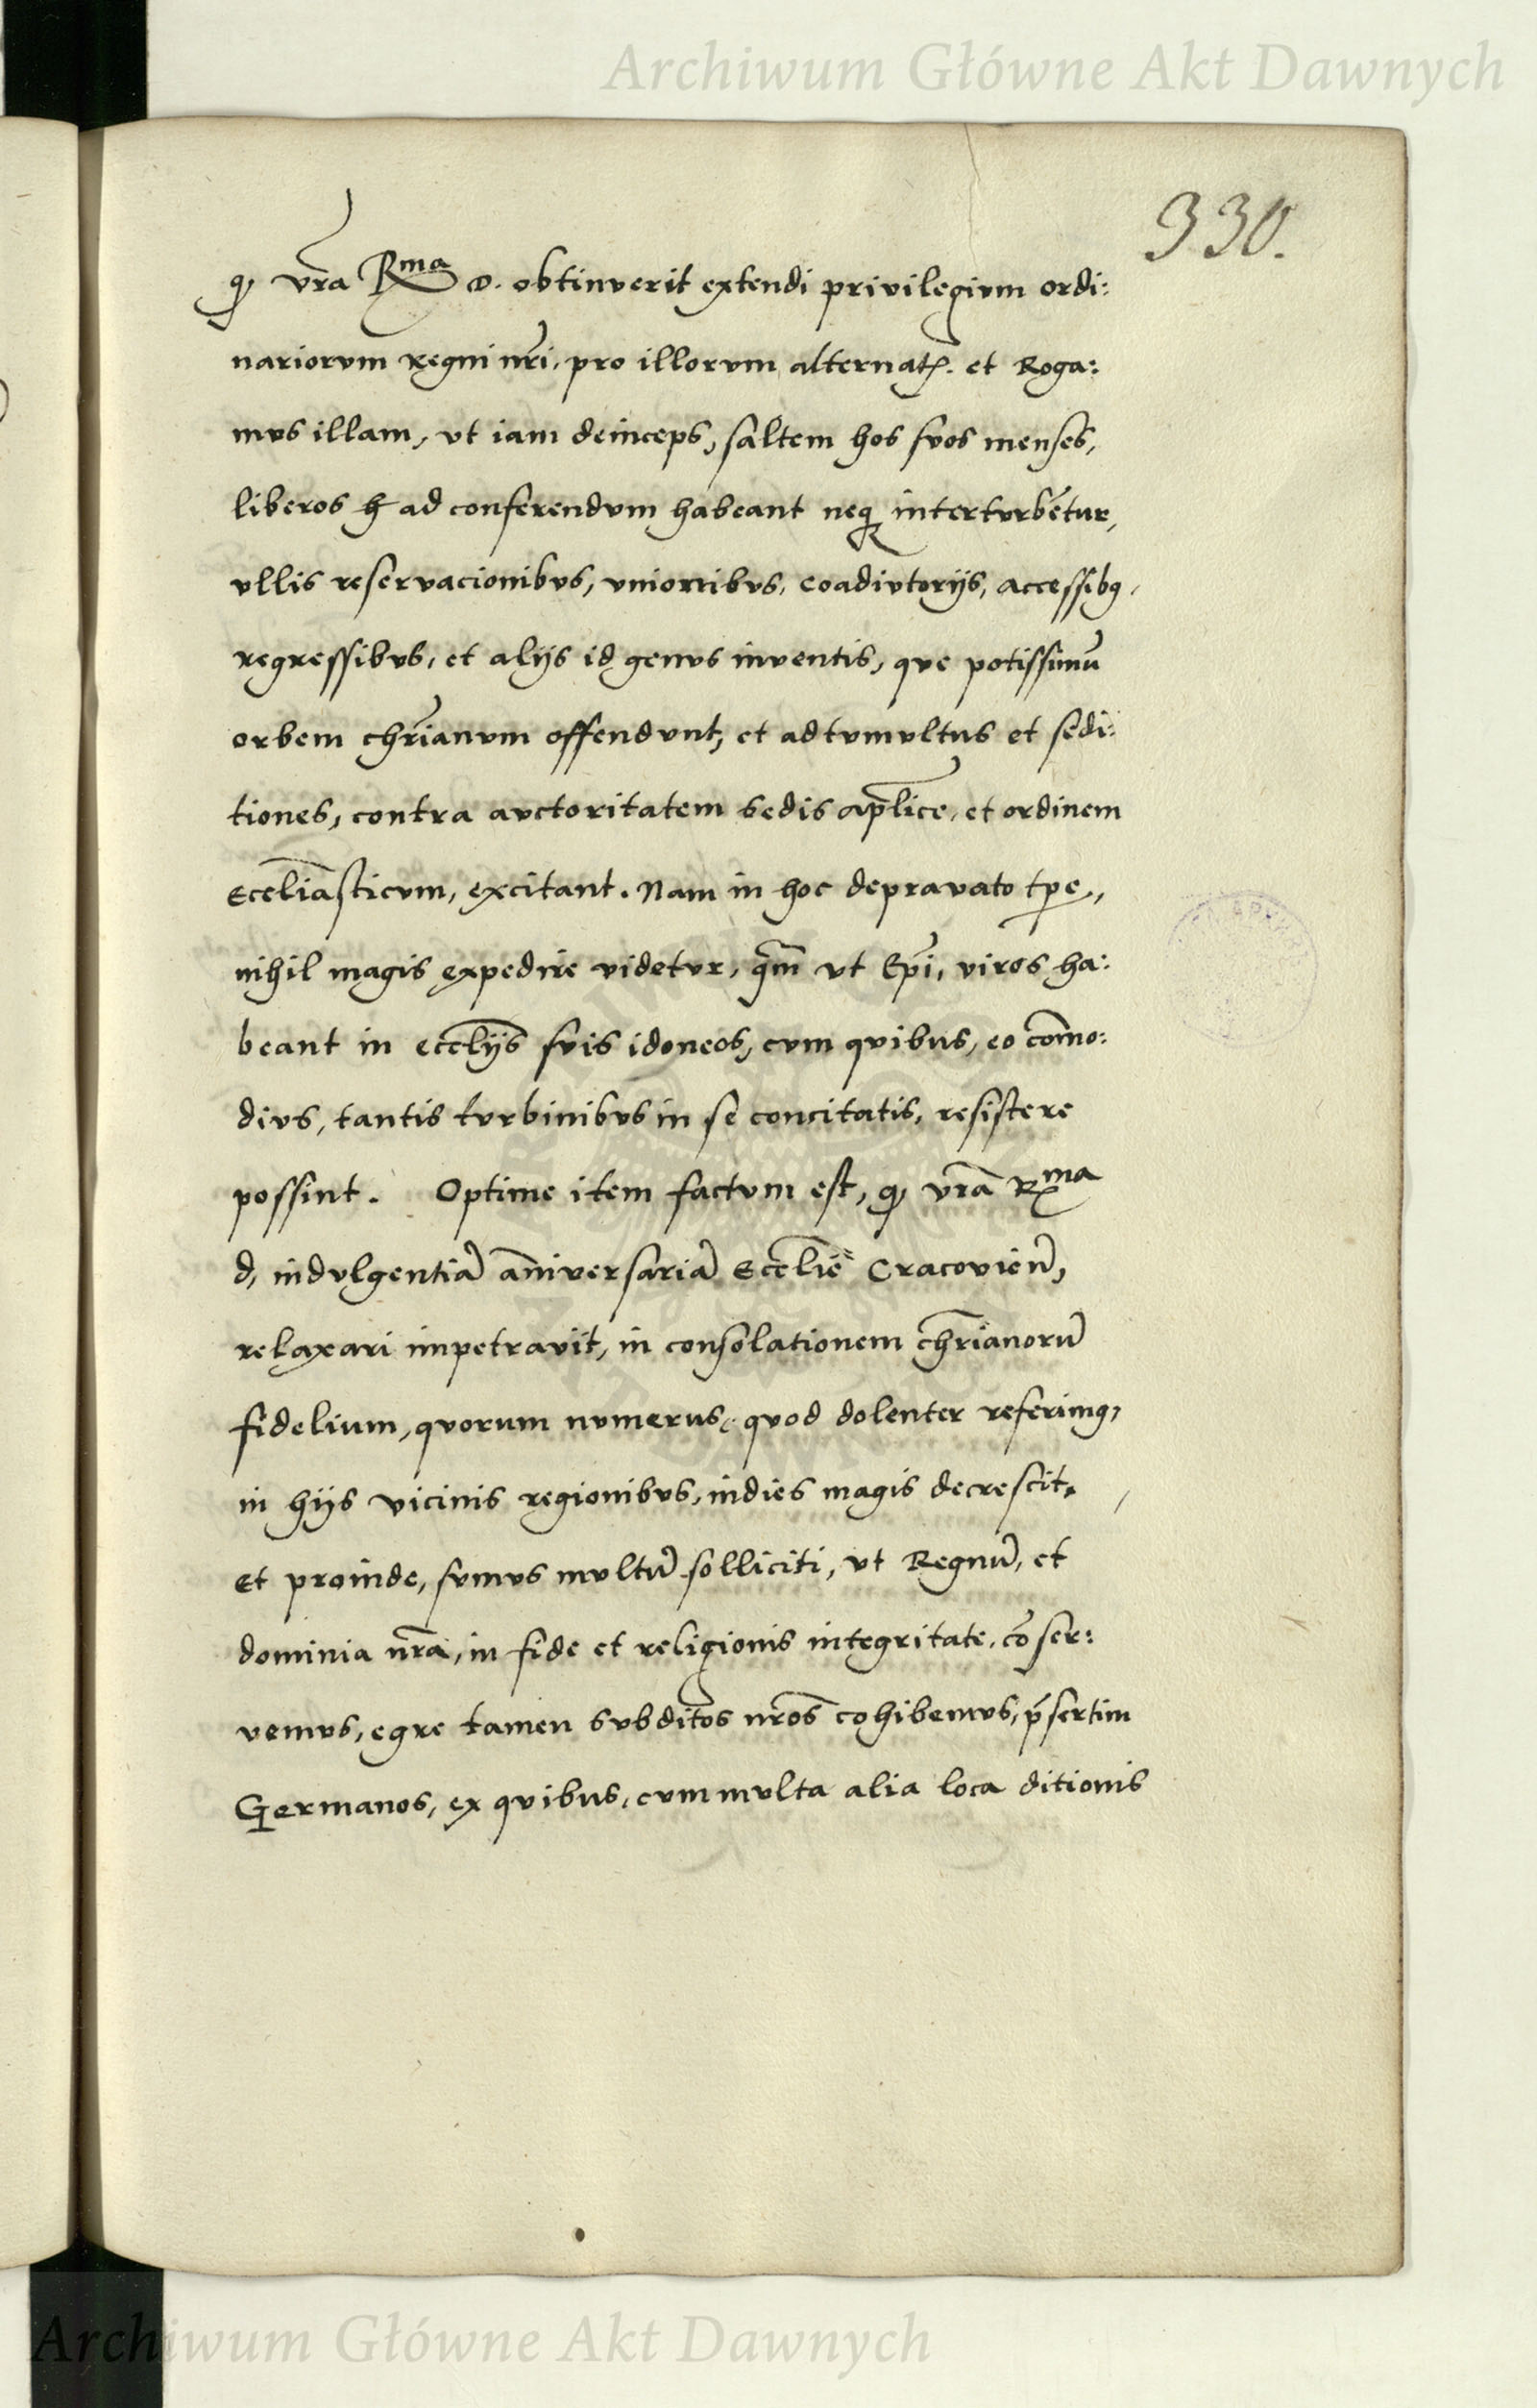 Archiwum Główne Akt Dawnych
330.
ꝙ vr̃a Rma D. obtinverit extendi privilegivm ordi:
nariorvm regni nr̃i, pro illorvm alternat. et Roga:
mvs illam, vt iam deinceps, saltem hos svos menses,
liberos ad conferendvm habeant neq intertvrbẽtur,
vllis reservacionibvs, vnionibvs, coadivtorijs, accessibꝯ,
regressibvs, et alijs id genvs inventis, qve potissimũ
orbem chr̃ianvm offendvnt, et ad tvmvltus et sedi:
tiones, contra avctoritatem sedis ap̃lice, et ordinem
Eccl̃iasticvm, excitant. Nam in hoc depravato tp̃e,
nihil magis expedire videtvr, q̃m vt Ep̃i, viros ha:
beant in eccl̃ijs svis idoneos, cvm qvibus, eo com̃o:
divs, tantis tvrbinibvs in se concitatis, resistere
possint. Optime item factvm est, ꝙ vr̃a Rma
d, indvlgentiã añiversariã Eccl̃ie Cracovieñ,
relaxari impetravit, in consolationem chr̃ianorũ
fidelium, qvorum nvmerus, qvod dolenter referimꝯ,
in hijs vicinis regionibvs, indies magis decrescit,
Et proinde, svmvs mvltũ solliciti, vt Regnũ, et
dominia nr̃a, in fide et religionis integritate, cõser:
vemvs, egre tamen svbditos nr̃os cohibemvs, p̃sertim
Germanos, ex qvibus, cvm mvlta alia loca ditionis
Archiwum Główne Akt Dawnych